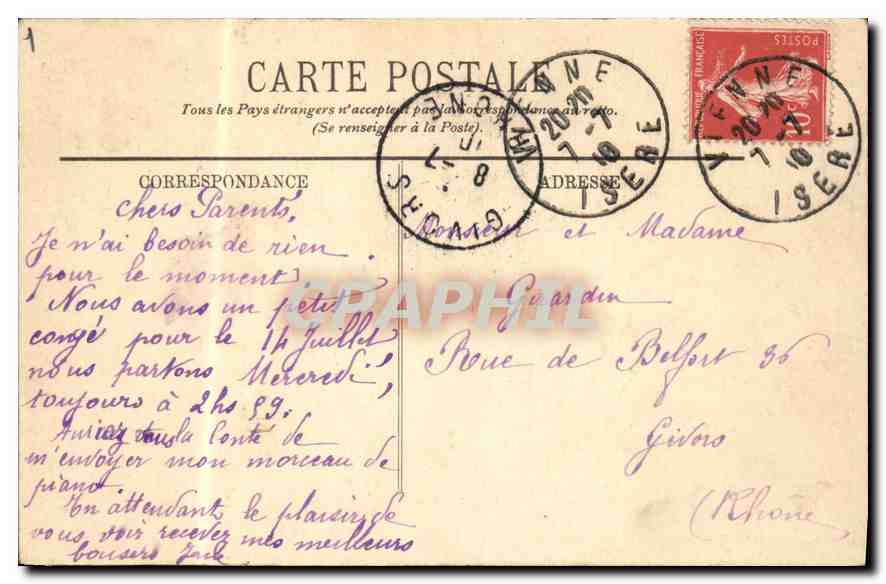 1
CARTE POSTALE
Tous les Pays étrangers n'acceptent pas la Correspondance au recto.
(Se renseigner à la Poste).
CORRESPONDANCE
chers Parents,
Je n'ai besoin de rien
pour le moment
Nous avons un petit
congé pour le 14 Juillet
nous partons Mercredi,
toujours à 2hs 59.
Auriez vous la bonté de
m'envoyer mon morceau de
piano.
En attendant le plaisir de
vous voir recevez mes meilleurs
baisers
ADRESSE
Monsieur et Madame
Girardin
Rue de Belfort 36
Givors
(Rhône
VIENNE
20-20
7 -7
10
ISERE
VIENNE
20-20
7 -7
10
ISERE
GIVORS
8 -7
10
RHONE
REPUBLIQUE FRANÇAISE
POSTES
10c
CPAPHIL